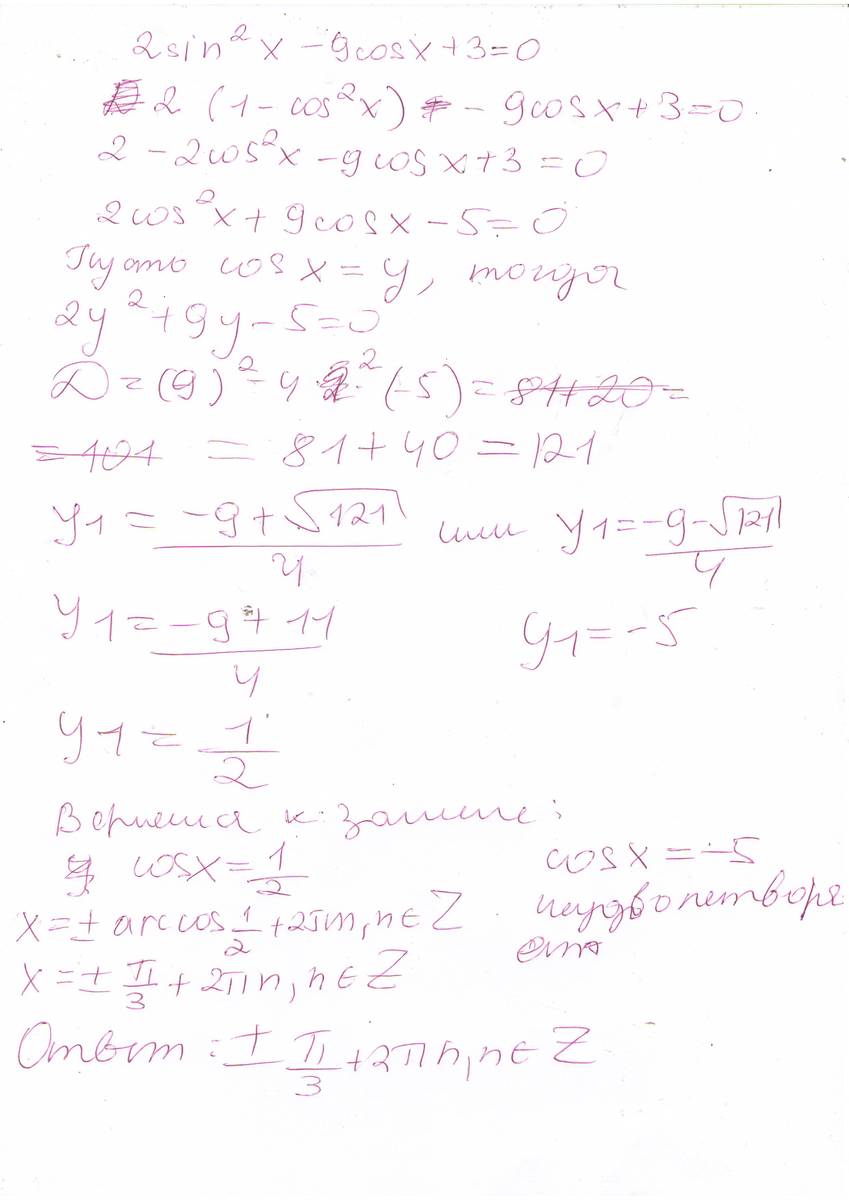 2sin²x - 9cosx + 3 = 0
2 (1 - cos²x) - 9cosx + 3 = 0
2 - 2cos²x - 9cosx + 3 = 0
2cos²x + 9cosx - 5 = 0
Пусть cos x = y, тогда
2y² + 9y - 5 = 0
D = (9)² - 4 · 2 (-5) = 81 + 20 =
= 101 = 81 + 40 = 121
y1 = (-9 + √121)/4 или y1 = (-9 - √121)/4
y1 = (-9 + 11)/4 y1 = -5
y1 = 1/2
Вернемся к замене:
cosx = 1/2 cosx = -5
x = ± arccos 1/2 + 2πn, n ∈ Z неудволетворя
ет
x = ± π/3 + 2πn, n ∈ Z
Ответ: ± π/3 + 2πn, n ∈ Z